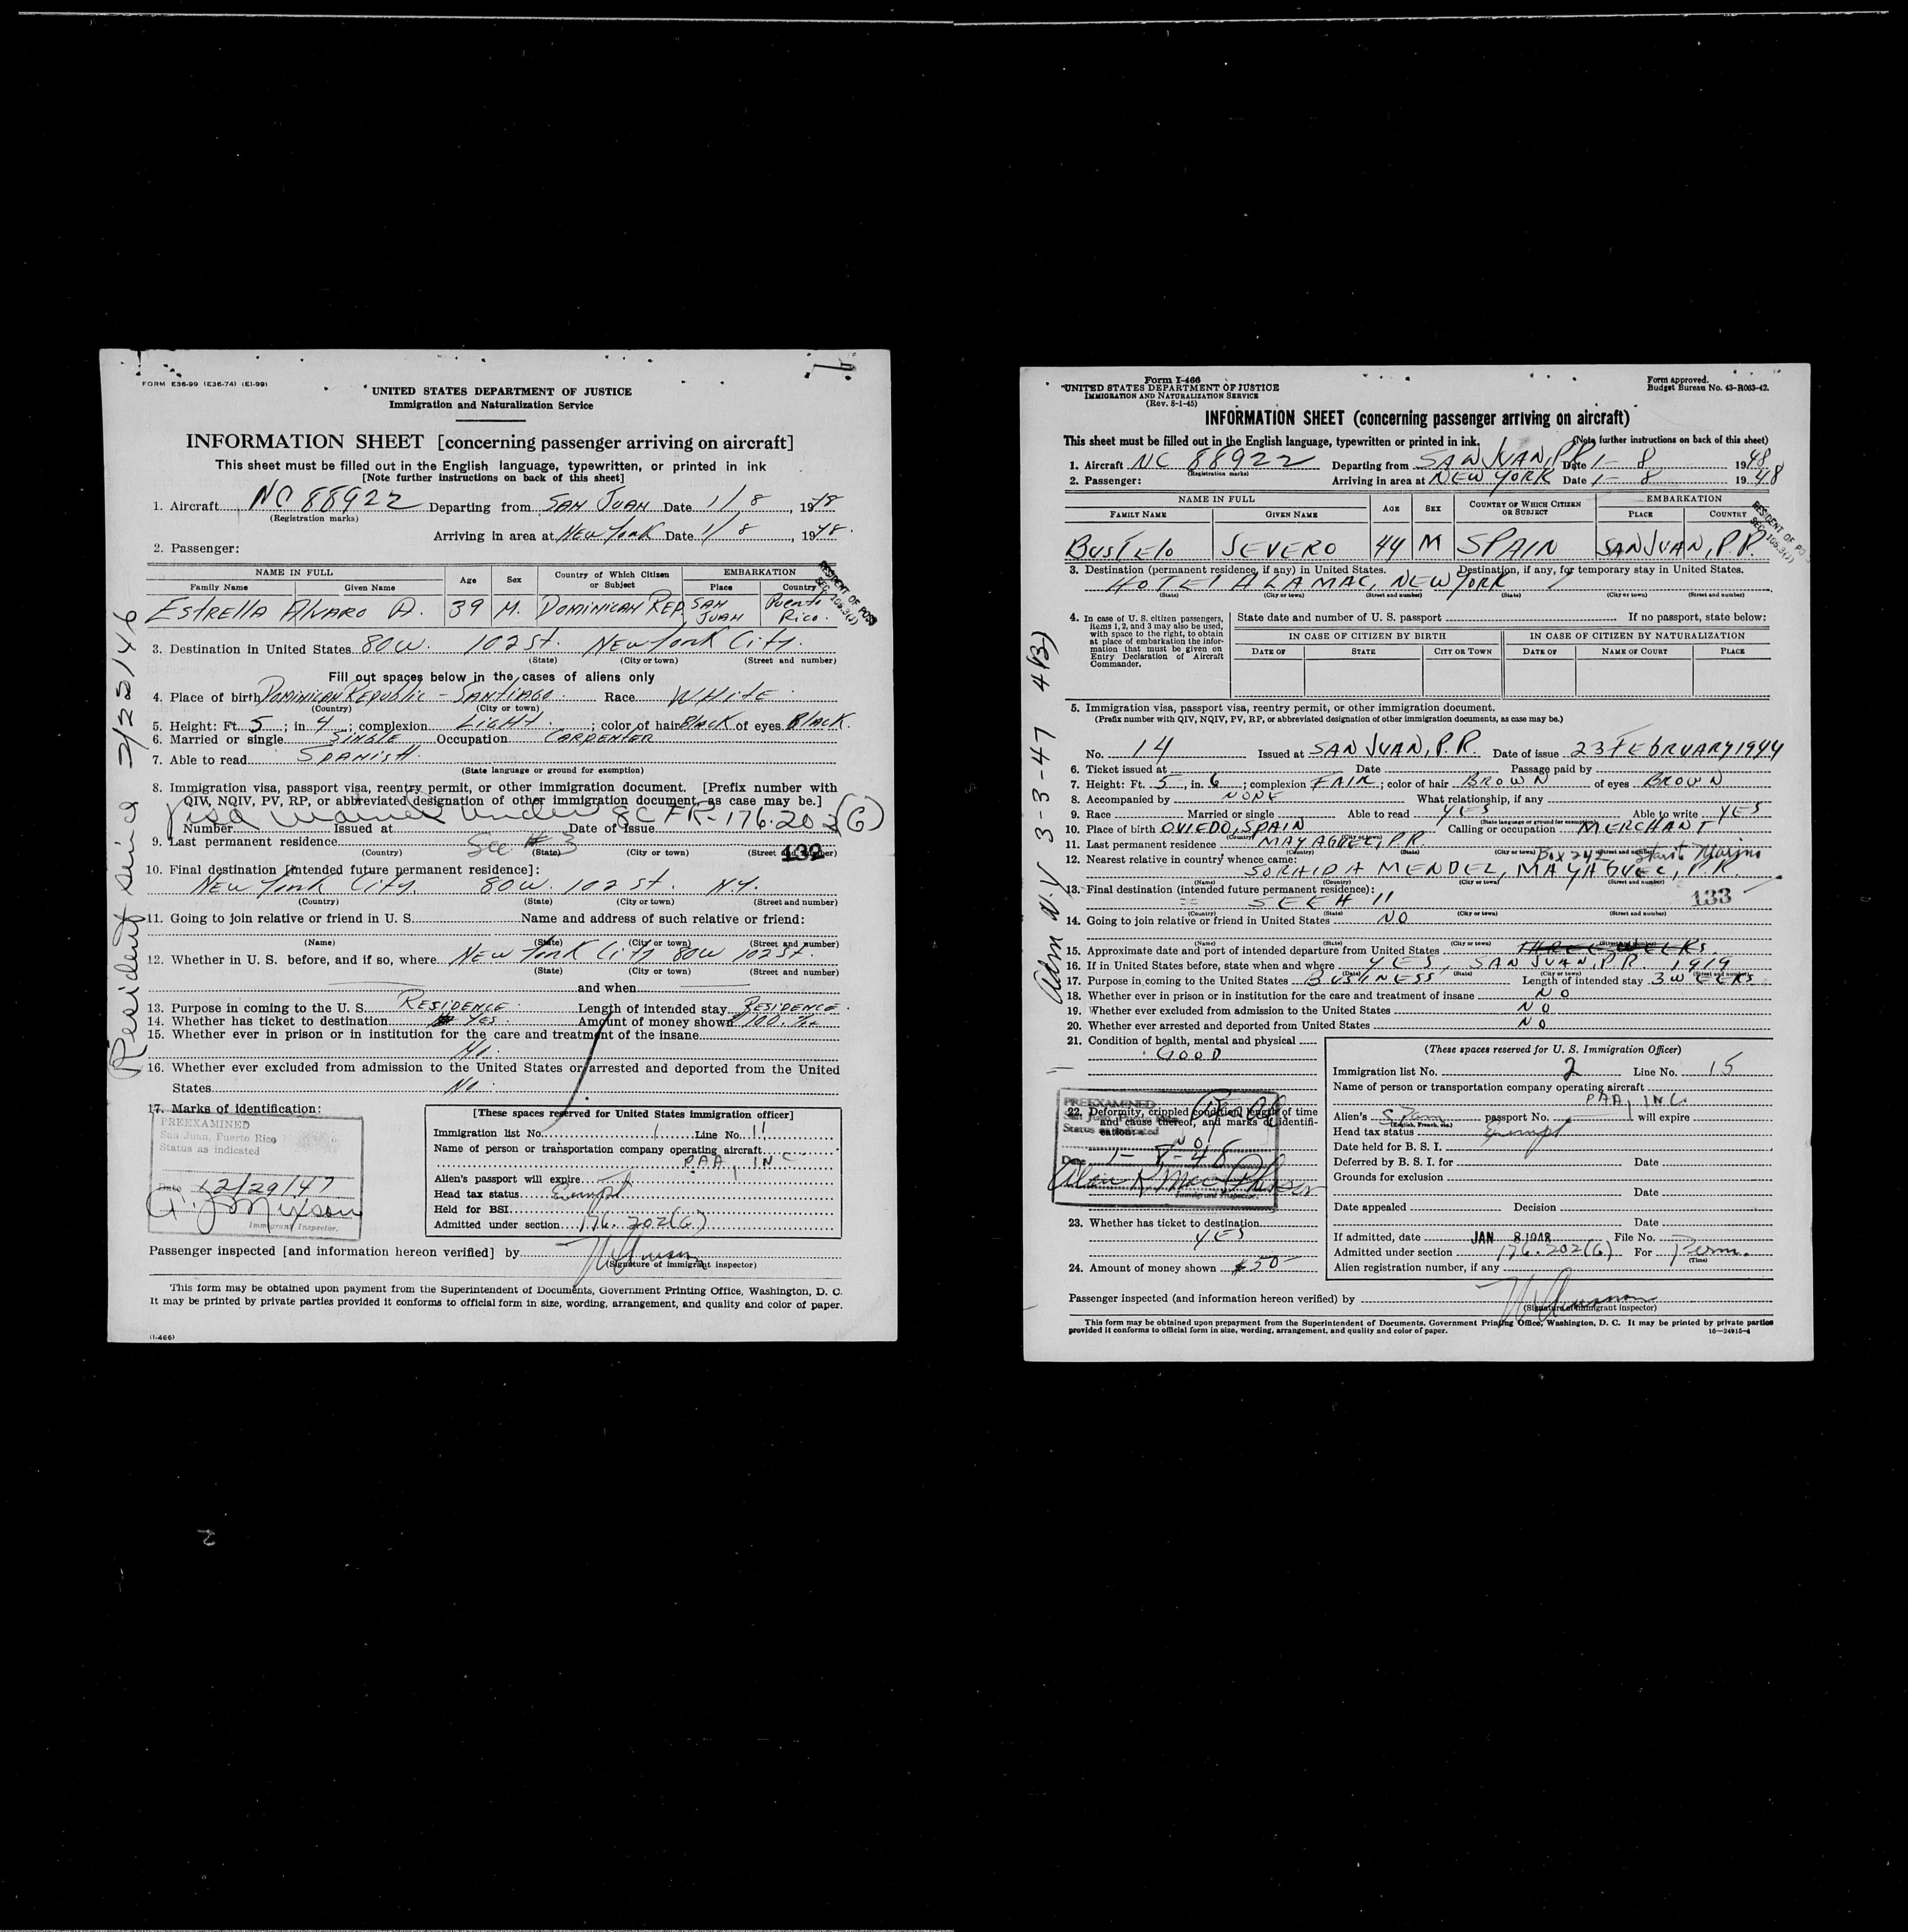 FORM E36-99 (E36-74) (EI-99)
UNITED STATES DEPARTMENT OF JUSTICE
Immigration and Naturalization Service
INFORMATION SHEET [concerning passenger arriving on aircraft]
This sheet must be filled out in the English language, typewritten, or printed in ink
[Note further instructions on back of this sheet]
1. Aircraft NC 88922 Departing from SAN JUAN Date 1/8, 1948
(Registration marks)
Arriving in area at NEW YORK Date 1/8, 1948.
2. Passenger:
NAME IN FULL Age Sex Country of Which Citizen or Subject EMBARKATION
Family Name Given Name Place Country
ESTRELLA ALVARO A. 39 M. DOMINICAN REP. SAN JUAN Puerto Rico.
RESIDENT OF POSS
SEC. 105.3(J)
3. Destination in United States 80 W. 102 St. NEW YORK City.
(State) (City or town) (Street and number)
Fill out spaces below in the cases of aliens only
4. Place of birth DOMINICAN REPUBLIC - SANTIAGO. Race WHITE.
(Country) (City or town)
5. Height: Ft. 5; in. 4; complexion LIGHT.; color of hair BLACK of eyes BLACK.
6. Married or single SINGLE Occupation CARPENTER
7. Able to read SPANISH.
(State language or ground for exemption)
8. Immigration visa, passport visa, reentry permit, or other immigration document. [Prefix number with
QIV, NQIV, PV, RP, or abbreviated designation of other immigration document, as case may be.]
Visa waived under 8CFR-176.202(G)
Number Issued at Date of Issue
9. Last permanent residence See #3
(Country) (State) (City or town) (Street and number)
132
10. Final destination [intended future permanent residence]:
NEW YORK City. 80 W. 102 St. N.Y.
(Country) (State) (City or town) (Street and number)
11. Going to join relative or friend in U. S. Name and address of such relative or friend:
(Name) (State) (City or town) (Street and number)
12. Whether in U. S. before, and if so, where NEW YORK City 80 W 102 St.
(State) (City or town) (Street and number)
and when
13. Purpose in coming to the U. S. RESIDENCE. Length of intended stay RESIDENCE.
14. Whether has ticket to destination YES. Amount of money shown $100.
15. Whether ever in prison or in institution for the care and treatment of the insane
No.
16. Whether ever excluded from admission to the United States or arrested and deported from the United
States No.
17. Marks of identification:
PREEXAMINED
San Juan, Puerto Rico
Status as indicated
Date 12/29/47
Immigrant Inspector.
[These spaces reserved for United States immigration officer]
Immigration list No. 1 Line No. 11
Name of person or transportation company operating aircraft
PAA, INC
Alien's passport will expire
Head tax status Exempt
Held for BSI
Admitted under section 176.202(G)
Passenger inspected [and information hereon verified] by
(Signature of immigrant inspector)
This form may be obtained upon payment from the Superintendent of Documents, Government Printing Office, Washington, D. C.
It may be printed by private parties provided it conforms to official form in size, wording, arrangement, and quality and color of paper.
(I-466)
Resident since 2/25/46
Form I-466
UNITED STATES DEPARTMENT OF JUSTICE
IMMIGRATION AND NATURALIZATION SERVICE
(Rev. 8-1-45)
Form approved.
Budget Bureau No. 43-R063-42.
INFORMATION SHEET (concerning passenger arriving on aircraft)
This sheet must be filled out in the English language, typewritten or printed in ink. (Note further instructions on back of this sheet)
1. Aircraft NC 88922 Departing from SAN JUAN, P.R. Date 1-8 1948
(Registration marks)
2. Passenger: Arriving in area at NEW YORK Date 1-8 1948
NAME IN FULL AGE SEX COUNTRY OF WHICH CITIZEN OR SUBJECT EMBARKATION
FAMILY NAME GIVEN NAME PLACE COUNTRY
BUSTELO SEVERO 44 M SPAIN SAN JUAN, P.R.
RESIDENT OF PO
SEC. 105.3(J)
3. Destination (permanent residence, if any) in United States. Destination, if any, for temporary stay in United States.
HOTEL ALAMAC, NEW YORK
(State) (City or town) (Street and number) (State) (City or town) (Street and number)
4. In case of U. S. citizen passengers, items 1, 2, and 3 may also be used, with space to the right, to obtain at place of embarkation the information that must be given on Entry Declaration of Aircraft Commander.
State date and number of U. S. passport If no passport, state below:
IN CASE OF CITIZEN BY BIRTH IN CASE OF CITIZEN BY NATURALIZATION
DATE OF STATE CITY OR TOWN DATE OF NAME OF COURT PLACE
5. Immigration visa, passport visa, reentry permit, or other immigration document.
(Prefix number with QIV, NQIV, PV, RP, or abbreviated designation of other immigration documents, as case may be.)
No. 14 Issued at SAN JUAN, P.R. Date of issue 23 FEBRUARY 1944
6. Ticket issued at Date Passage paid by
7. Height: Ft. 5, in. 6; complexion FAIR; color of hair BROWN of eyes BROWN
8. Accompanied by NONE What relationship, if any
9. Race Married or single Able to read YES Able to write YES
(State language or ground for exemption)
10. Place of birth OVIEDO, SPAIN Calling or occupation MERCHANT
(Country) (City or town)
11. Last permanent residence MAYAGUEZ, P.R.
(Country) (State) (City or town) (Street and number)
Box 242
12. Nearest relative in country whence came:
SORAIDA MENDEZ, MAYAGUEZ, P.R.
(Name) (Country) (City or town) (Street and number)
13. Final destination (intended future permanent residence):
SEE # 11
133
(Country) (State) (City or town) (Street and number)
14. Going to join relative or friend in United States NO
(Name) (State) (City or town) (Street and number)
15. Approximate date and port of intended departure from United States THREE WEEKS
16. If in United States before, state when and where YES, SAN JUAN, P.R. 1919
(Date) (State) (City or town) (Street and number)
17. Purpose in coming to the United States BUSINESS Length of intended stay 3 WEEKS
18. Whether ever in prison or in institution for the care and treatment of insane NO
19. Whether ever excluded from admission to the United States NO
20. Whether ever arrested and deported from United States NO
21. Condition of health, mental and physical
GOOD
22. Deformity, crippled condition, length of time and cause thereof, and marks of identification:
NO
PREEXAMINED
San Juan, Puerto Rico
Status as indicated
Date 1-8-48
Immigrant Inspector.
23. Whether has ticket to destination
YES
24. Amount of money shown $50-
(These spaces reserved for U. S. Immigration Officer)
Immigration list No. 2 Line No. 15
Name of person or transportation company operating aircraft
PAA, INC.
Alien's Span passport No. will expire
(English, French, etc.)
Head tax status Exempt
Date held for B. S. I.
Deferred by B. S. I. for Date
Grounds for exclusion
Date
Date appealed Decision
Date
If admitted, date JAN 8 1948 File No.
Admitted under section 176.202(G) For Perm.
(Time)
Alien registration number, if any
Passenger inspected (and information hereon verified) by
(Signature of immigrant inspector)
This form may be obtained upon prepayment from the Superintendent of Documents, Government Printing Office, Washington, D. C. It may be printed by private parties
provided it conforms to official form in size, wording, arrangement, and quality and color of paper.
16—24915-4
Adm N.Y 3-3-47 4(B)
2